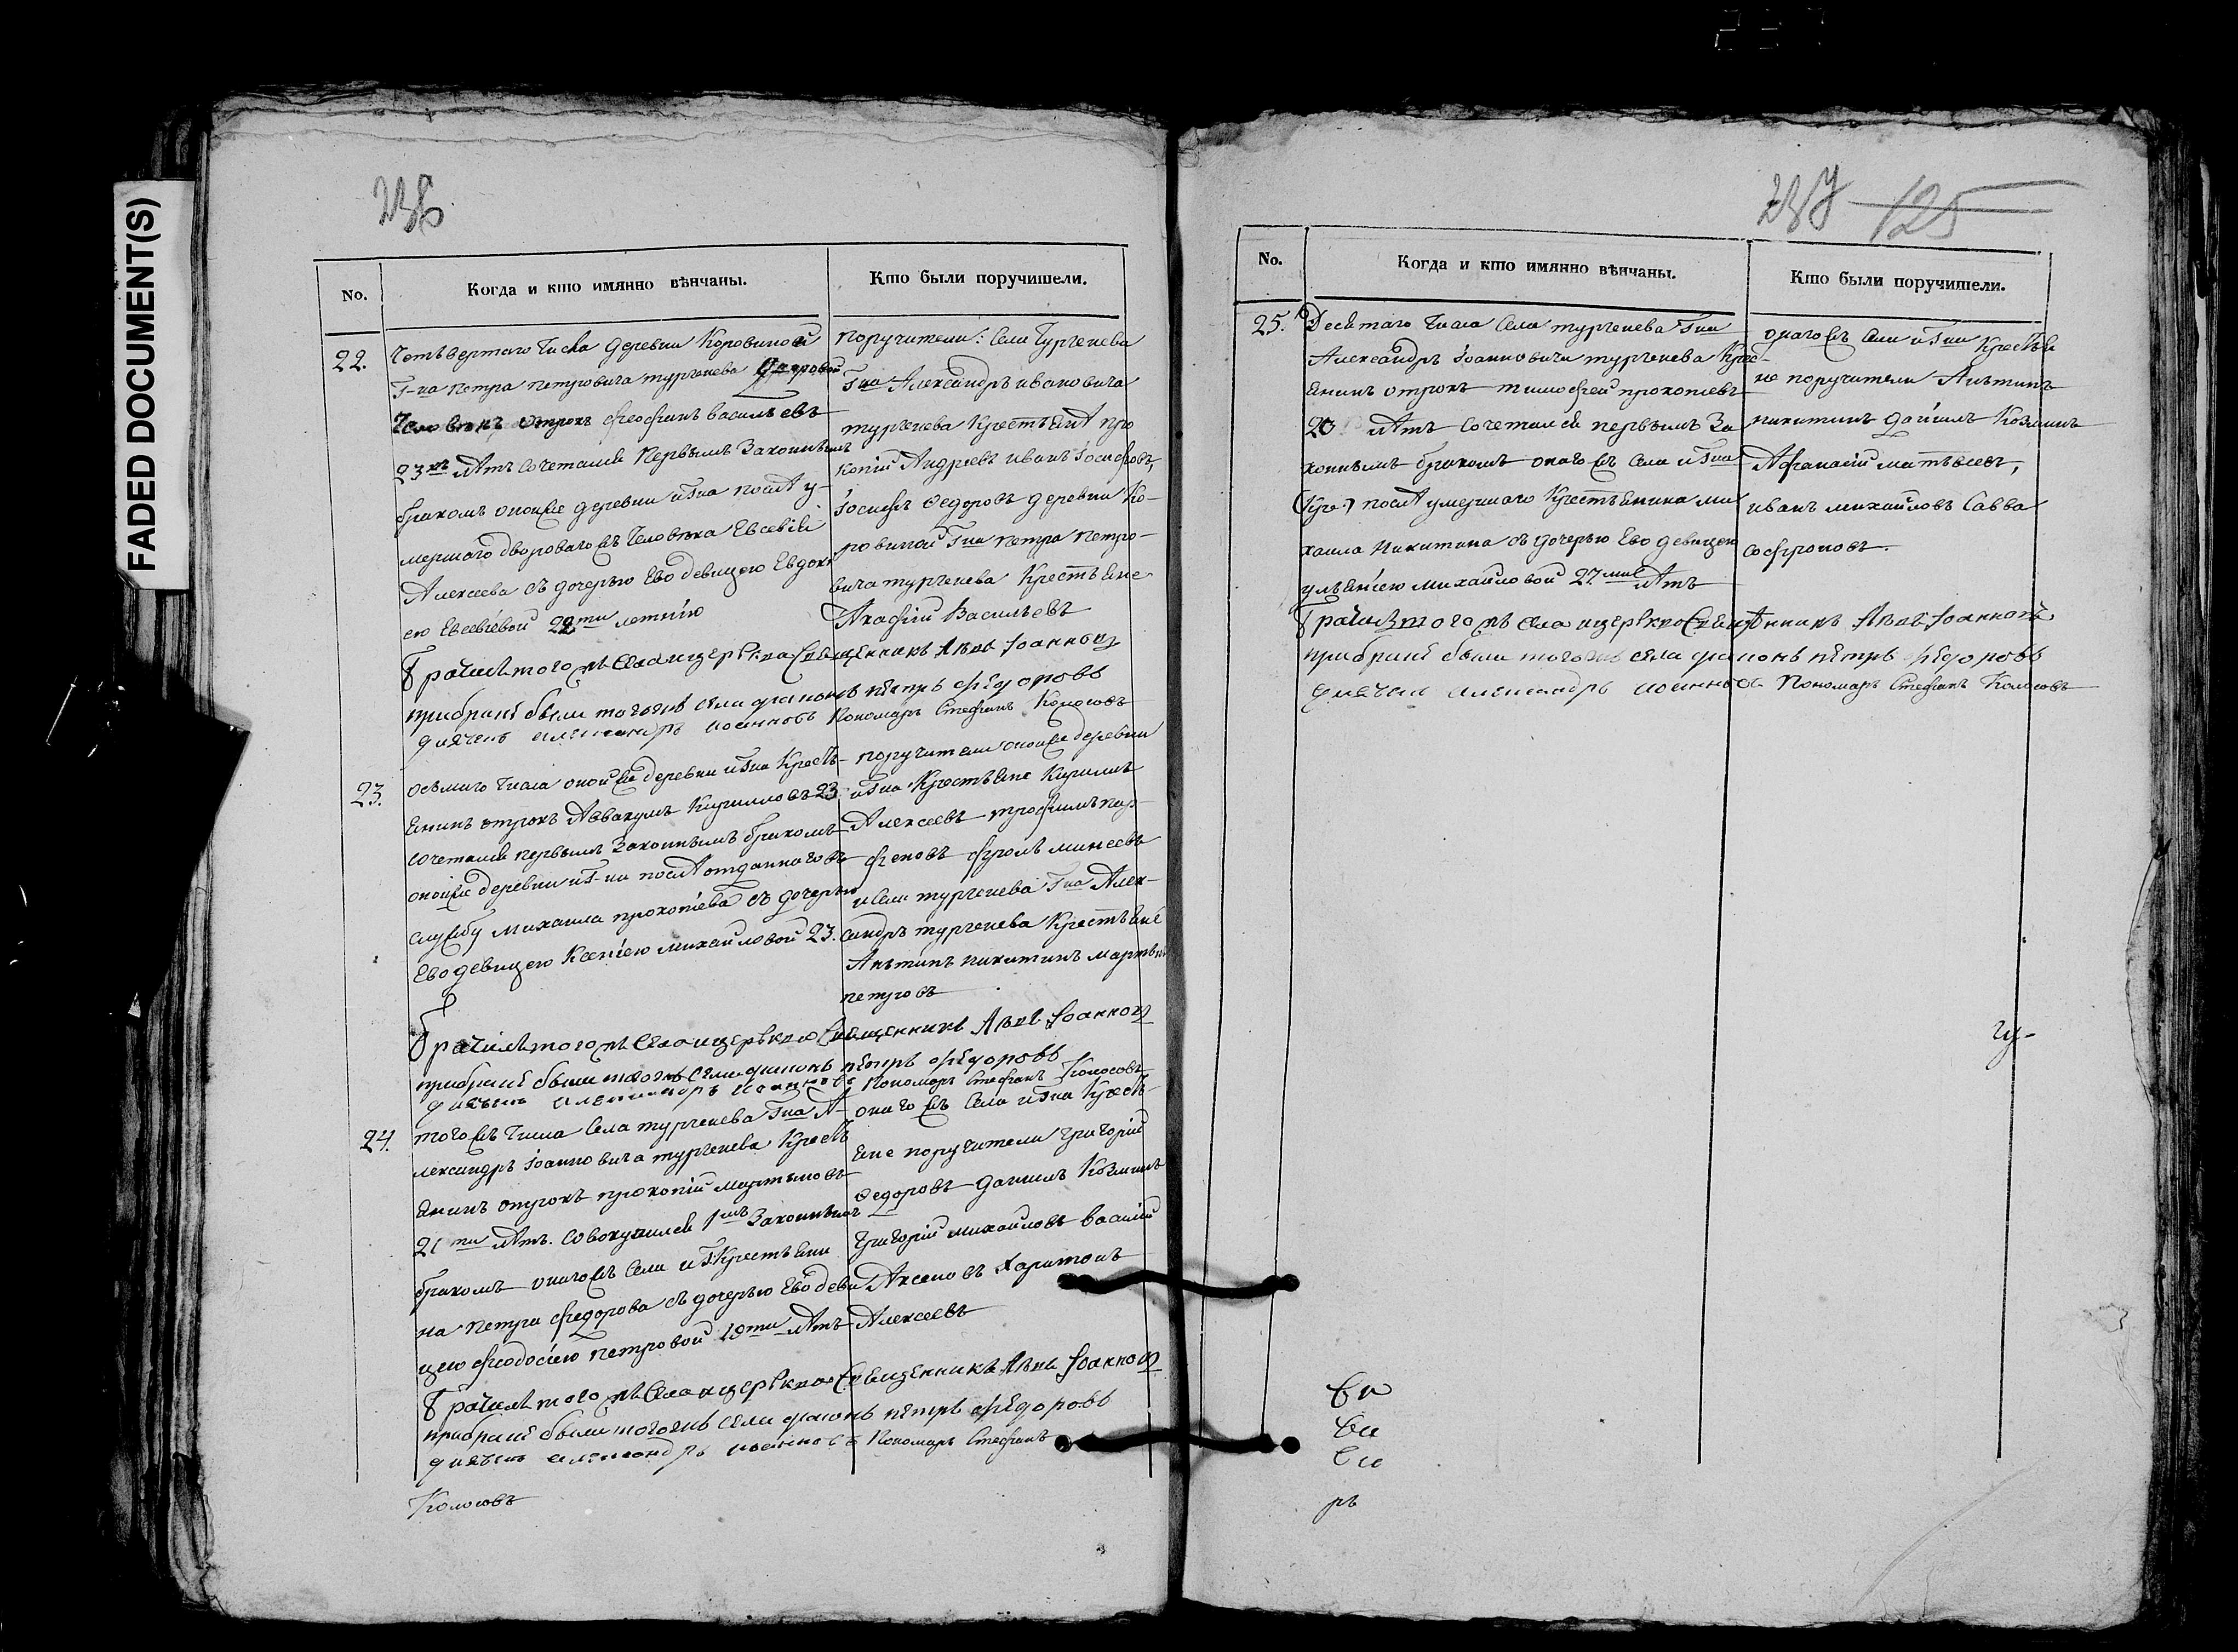 FADED DOCUMENT(S)
236
No.
Когда и кто имянно вѣнчаны.
Кто были поручители.
22.
Четьвертаго Числа деревни Коровиной
Г-на Петра петровича тургенева дворовой
Человекъ отрокъ Феофанъ васильевъ
23хъ лѣтъ сочетался Первымъ Законнымъ
бракомъ оной же деревни и Гна послѣ у-
мершаго двороваго жъ Человека Евсевія
Алексеева съ дочерью Ево девицею Евдоки
ею Евсевіевой 22ти летнію
поручители: Села Тургенева
Гна Александръ ивановича
тургенева Крестьянѣ про
копій Андреевъ иванъ Іосифовъ,
Іосифъ Федоровъ деревни Ко-
ровиной Гна Петра Петро-
вича тургенева Крестьяне
Акафій Васильевъ
Брачилъ того жъ села иерѣкло Священникъ Львъ Іоанновъ
при браке были того жъ села диаконъ петръ Федоровъ
диячекъ александръ иоанновъ Пономарь Стефанъ Колосовъ
23.
Осьмаго Числа оной же деревни и Гна Кресть-
янинъ отрокъ Аввакумъ Кирилловъ 23
сочетался первымъ Законнымъ бракомъ
оной же деревни и Г-на послѣ отданнаго въ
службу михаила прокопіева съ дочерью
Ево девицею Ксеніею михайловой 23.
поручители оной же деревни
и Гна Крестьяне Кирилъ
Алексеевъ трофимъ пар-
феновъ фролъ минеевъ
и Села тургенева Гна Алек-
сандръ тургенева Крестьяне
Антипъ никитинъ мартынъ
петровъ
Брачилъ того жъ села иерѣкло Священникъ Львъ Іоанновъ
при браке были того жъ села диаконъ петръ Федоровъ
диячекъ александръ иоанновъ Пономарь Стефанъ Колосовъ
24.
того жъ Числа Села тургенева Гна А-
лександръ Іоанновича тургенева Кресть
янинъ отрокъ прокопій мартыновъ
21ти лѣтъ. совокупился 1мъ Законнымъ
бракомъ онаго жъ Села и Г. Крестьяни
на Петра федорова съ дочерью Ево деви
цею феодосіею Петровой 19ти лѣтъ
онаго жъ Села и Гна Кресть-
яне поручители Григорій
Федоровъ Данилъ Козминъ
Григорій михайловъ василій
Аксеновъ Харитонъ
Алексеевъ
Брачилъ того жъ села иерѣкло Священникъ Львъ Іоанновъ
при браке были того жъ села диаконъ петръ Федоровъ
диячекъ александръ иоанновъ Пономарь Стефанъ
Колосовъ
237 125
No.
Когда и кто имянно вѣнчаны.
Кто были поручители.
25.
Десятаго Числа Села тургенева Гна
Александръ Іоанновича тургенева Крес-
янинъ отрокъ тимофей прокопіевъ
20 лѣтъ сочетался первымъ За
коннымъ бракомъ онаго жъ Села и Гна
послѣ умершаго Крестьянина ми
хаила Никитина съ дочерью Ево девицею
ульяніею михайловой 27ми лѣтъ
онаго жъ Села и Гна Крестья
не поручители Антипъ
никитинъ данилъ Козминъ
Афанасій матвѣевъ,
иванъ михайловъ Савва
софроновъ.
Брачилъ того жъ села иерѣкло Священникъ Львъ Іоанновъ
при браке были того жъ села диаконъ петръ Федоровъ
диячекъ александръ иоанновъ Пономарь Стефанъ Колосовъ